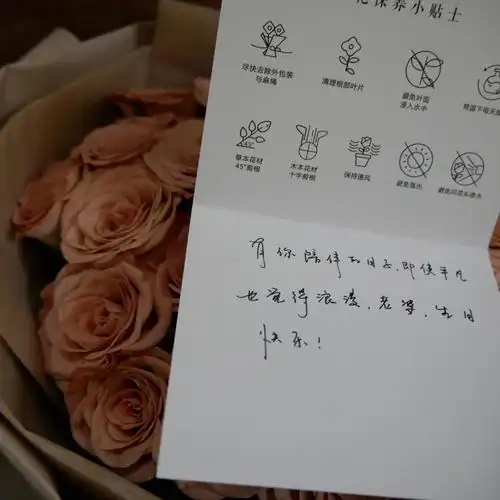 花保养小贴士
尽快去除外包装
与麻绳
清理根部叶片
避免叶面
浸入水中
45°
草本花材
45°剪根
木本花材
十字剪根
保持通风
有你陪伴的日子,即使平凡
也觉得浪漫,老婆,生日
快乐!